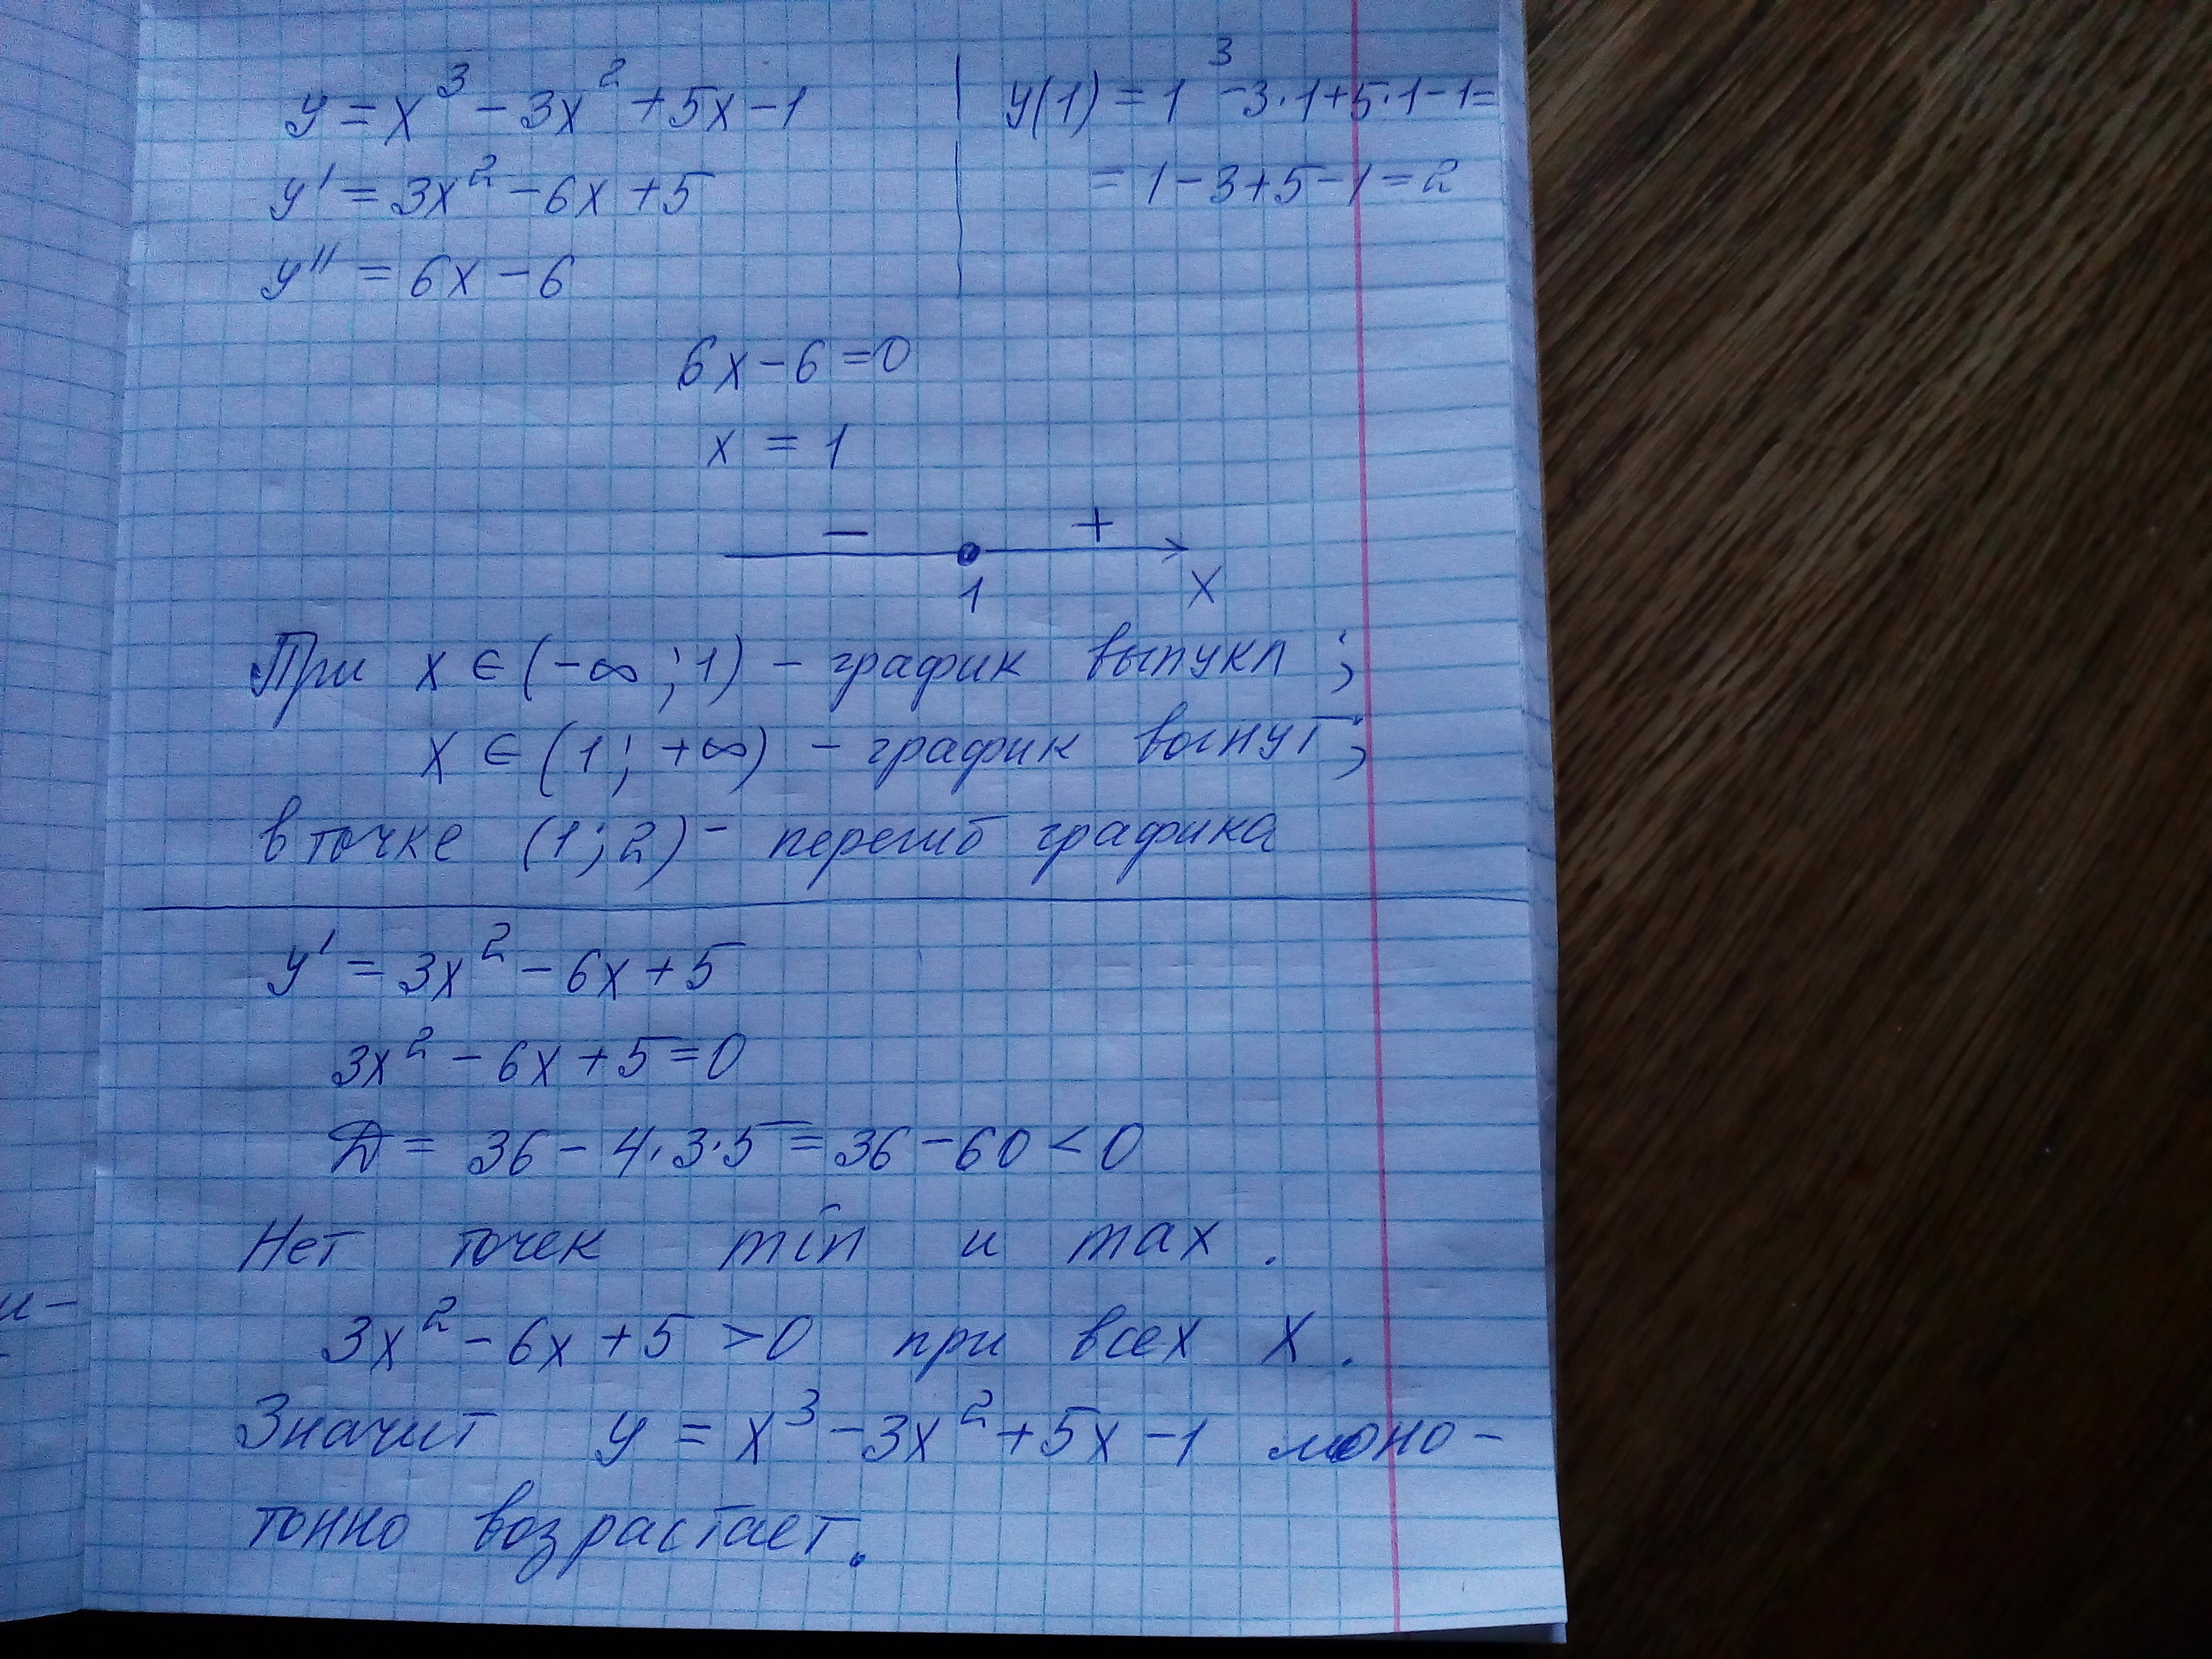 y = x³ - 3x² + 5x - 1
y' = 3x² - 6x + 5
y'' = 6x - 6
y(1) = 1³ - 3·1 + 5·1 - 1 =
= 1 - 3 + 5 - 1 = 2
6x - 6 = 0
x = 1
- +
1 x
При x ∈ (-∞; 1) - график выпукл;
x ∈ (1; +∞) - график вогнут;
в точке (1; 2) - перегиб графика
y' = 3x² - 6x + 5
3x² - 6x + 5 = 0
Д = 36 - 4·3·5 = 36 - 60 < 0
Нет точек min и max.
3x² - 6x + 5 > 0 при всех x.
Значит y = x³ - 3x² + 5x - 1 моно-
тонно возрастает.